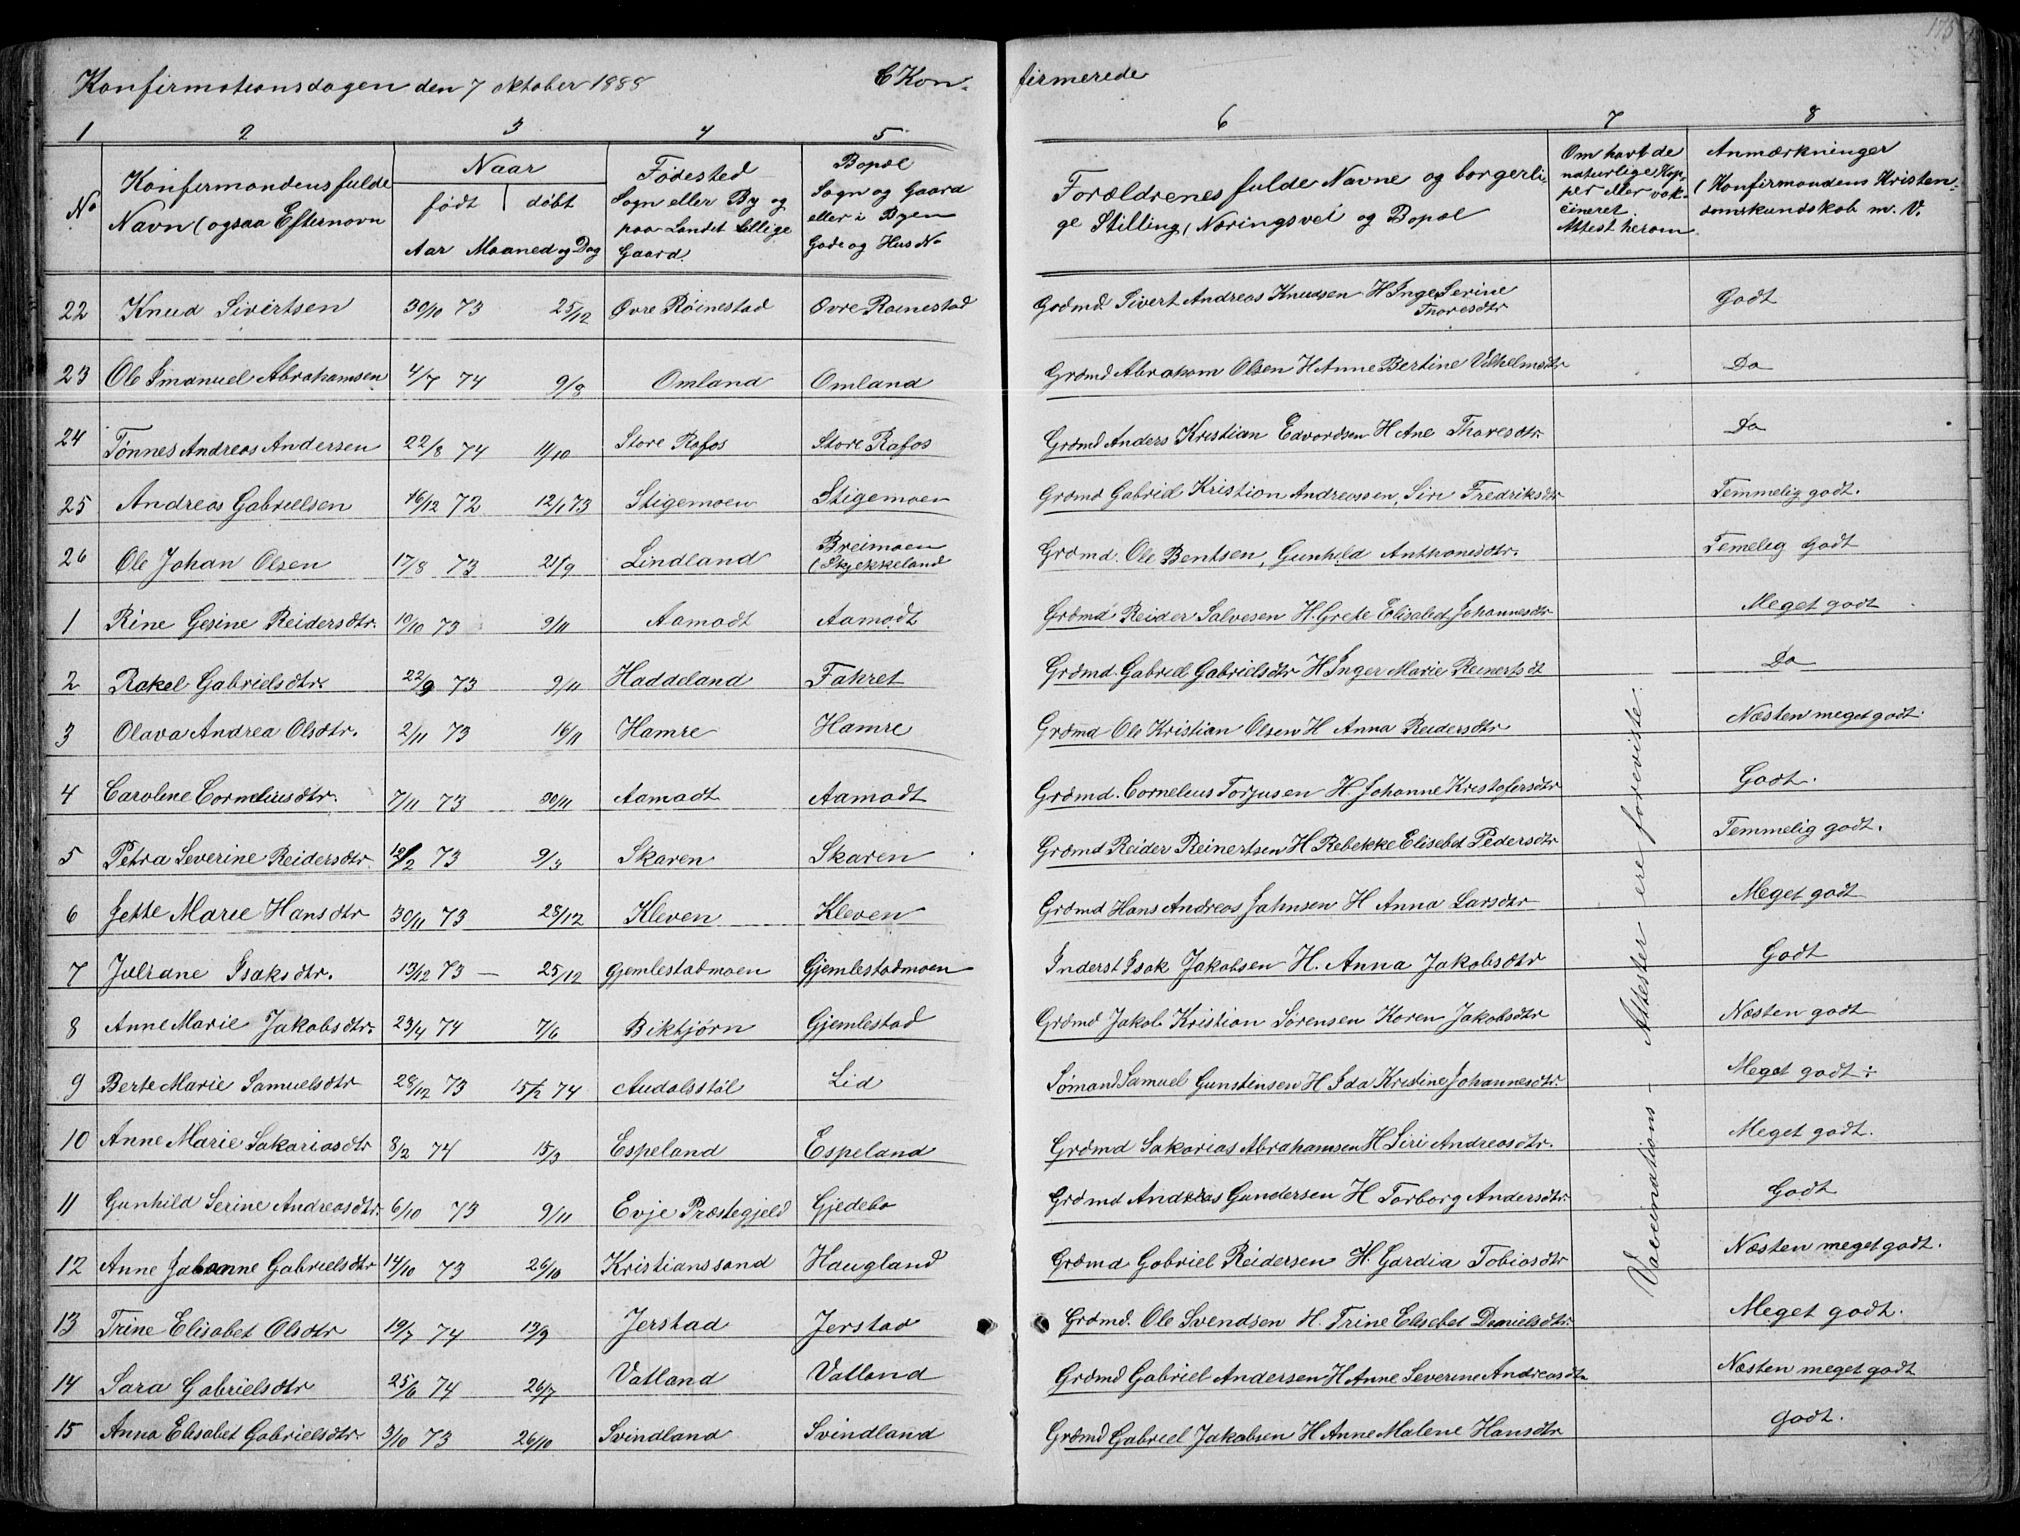 175
Konfirmationsdagen den 7 oktober 1888 C Kon- firmerede
1 2 3 4 5 6 7 8
No
Konfirmandens fulde
Navn (ogsaa Efternavn
Naar
født døbt
Aar Maaned og Dag
Fødested
Sogn eller By og
paa Landet tillige
Gaard.
Bopæl
Sogn og Gaard
eller i Byen
Gade og Hus No
Forældrenes fulde Navne og borgerli-
ge Stilling (Næringsvei og Bopæl
Om havt de
naturlige Kop-
per eller vak-
cineret.
Attest herom
Anmærkninger
(Konfirmandens Kristen-
domskundskab m. V.
22 Knud Sivertsen 30/10 73 25/12 Øvre Røinestad Øvre Røinestad Grdmd. Sivert Andreas Knudsen H Inger Serine Godt
Thoresdtr
23 Ole Imanuel Abrahamsen 4/7 74 9/8 Omland Omland Grdmd Abraham Olsen H Anne Bertine Vilhelmsdtr Do
24 Tønnes Andreas Andersen 22/8 74 11/10 Store Rafos Store Rafos Grdmd Anders Kristian Edvardsen H Ane Thoresdtr. Do
25 Andreas Gabrielsen 16/12 72 12/1 73 Stigemoen Stigemoen Grdmd Gabriel Kristian Andreassen, Siri Fredriksdtr Temmelig godt.
26 Ole Johan Olsen 17/8 73 21/9 Lindland Breimoen
(Skjekkeland Grdmd. Ole Bentsen, Gunhild Anthonisdtr. Temelig Godt
1 Rine Gesine Reidersdtr. 10/10 73 9/11 Aamodt Aamodt Grdmd Reider Salvesen H. Grete Elisabed Johannesdtr Meget godt
2 Rakel Gabrielsdtr. 22/9 73 9/11 Haddeland Fahret Grdmd. Gabriel Gabrielsdtr H Inger Marie Reinertsdt Do
3 Olava Andrea Olsdtr. 2/11 73 16/11 Hamre Hamre Grdmd Ole Kristian Olsen H Anna Reidersdtr Næsten meget godt.
4 Caroline Corneliusdtr. 7/11 73 30/11 Aamodt Aamodt Grdmd. Cornelius Torjusen H. Johanne Kristofersdtr Godt.
5 Petra Severine Reidersdtr. 10/2 73 9/3 Skaren Skaren Grdmd Reider Reinertsen H Rebekke Elisebet Pedersdtr Temmelig godt.
6 Jette Marie Hansdtr 30/11 73 28/12 Kleven Kleven Grdmd Hans Andreas Jahnsen H Anna Larsdtr Meget godt
7 Juliane Isaksdtr. 13/12 73 — 25/12 Gjemlestadmoen Gjemlestadmoen Inderst Isak Jakobsen H. Anna Jakobsdtr Godt
8 Anne Marie Jakobsdtr. 23/4 74 7/6 Biktjørn Gjemlestad Grdmd Jakob Kristian Sørensen Karen Jakobsdtr Næsten godt
9 Berte Marie Samuelsdtr 28/12 73 15/2 74 Audalsstøl Lid Sømand Samuel Gunstensen H Ida Kristine Johannesdtr. Meget godt
10 Anne Marie Sakariasdtr 8/2 74 15/3 Espeland Espeland Grdmd Sakarias Abrahamsen H Siri Andreasdtr. Meget godt.
11 Gunhild Serine Andreasdtr. 6/10 73 9/11 Evje Præstegjeld Gjedebo Grdmd Andreas Gundersen H Torborg Andersdtr. Godt
12 Anne Johanne Gabrielsdtr 14/10 73 26/10 Kristianssand Haugland Grdmd Gabriel Reidersen H. Gardia Tobiasdtr Næsten meget godt.
13 Trine Elisabet Olsdtr 19/7 74 13/9 Jerstad Jerstad Grdmd. Ole Svendsen H. Trine Elisebet Danielsdtr. Meget godt.
14 Sara Gabrielsdtr 25/6 74 26/7 Vatland Vatland Grdmd Gabriel Andersen H Anne Severine Andreasdtr Næsten meget godt
15 Anna Elisabet Gabrielsdtr. 3/10 73 26/10 Svindland Svindland Grdmd Gabriel Jakobsen H Anne Malene Hansdtr godt.
Vaccinations- Attester ere foreviste.